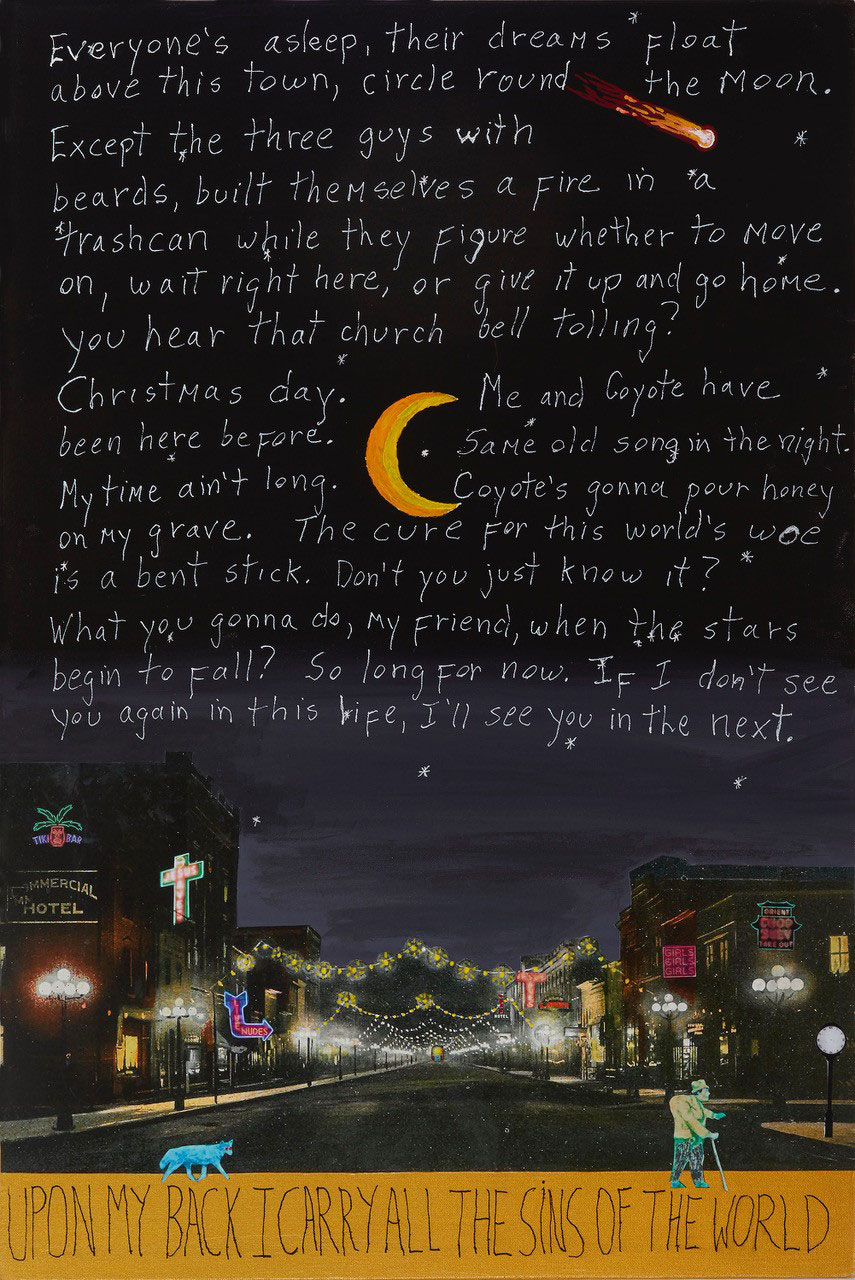 Everyone's asleep, their dreams float
above this town, circle round the Moon.
Except the three guys with
beards, built themselves a fire in a
trashcan while they figure whether to move
on, wait right here, or give it up and go home.
you hear that church bell tolling?
Christmas day. Me and Coyote have
been here before. Same old song in the night.
My time ain't long. Coyote's gonna pour honey
on my grave. The cure for this world's woe
is a bent stick. Don't you just know it?
What you gonna do, my friend, when the stars
begin to fall? So long for now. If I don't see
you again in this life, I'll see you in the next.
TIKI BAR
MMERCIAL
HOTEL
JESUS
NUDES
GIRLS
GIRLS
GIRLS
ORIENT
CHOP
SUEY
TAKE OUT
UPON MY BACK I CARRY ALL THE SINS OF THE WORLD